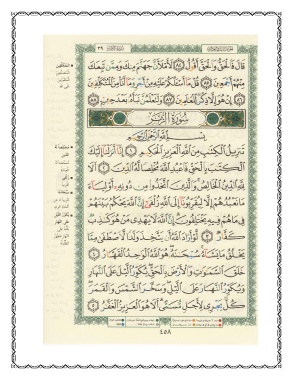 قَالَ فَالْحَقُّ وَالْحَقَّ أَقُولُ ۝٨٤ لَأَمْلَأَنَّ جَهَنَّمَ مِنكَ وَمِمَّن تَبِعَكَ
مِنْهُمْ أَجْمَعِينَ ۝٨٥ قُلْ مَا أَسْأَلُكُمْ عَلَيْهِ مِنْ أَجْرٍ وَمَا أَنَا مِنَ الْمُتَكَلِّفِينَ
۝٨٦ إِنْ هُوَ إِلَّا ذِكْرٌ لِّلْعَالَمِينَ ۝٨٧ وَلَتَعْلَمُنَّ نَبَأَهُ بَعْدَ حِينٍ ۝٨٨
سُورَةُ الزُّمَرِ
بِسْمِ اللَّهِ الرَّحْمَٰنِ الرَّحِيمِ
تَنزِيلُ الْكِتَابِ مِنَ اللَّهِ الْعَزِيزِ الْحَكِيمِ ۝١ إِنَّا أَنزَلْنَا إِلَيْكَ
الْكِتَابَ بِالْحَقِّ فَاعْبُدِ اللَّهَ مُخْلِصًا لَّهُ الدِّينَ ۝٢ أَلَا
لِلَّهِ الدِّينُ الْخَالِصُ وَالَّذِينَ اتَّخَذُوا مِن دُونِهِ أَوْلِيَاءَ
مَا نَعْبُدُهُمْ إِلَّا لِيُقَرِّبُونَا إِلَى اللَّهِ زُلْفَىٰ إِنَّ اللَّهَ يَحْكُمُ بَيْنَهُمْ
فِي مَا هُمْ فِيهِ يَخْتَلِفُونَ إِنَّ اللَّهَ لَا يَهْدِي مَنْ هُوَ كَاذِبٌ
كَفَّارٌ ۝٣ لَّوْ أَرَادَ اللَّهُ أَن يَتَّخِذَ وَلَدًا لَّاصْطَفَىٰ مِمَّا
يَخْلُقُ مَا يَشَاءُ سُبْحَانَهُ هُوَ اللَّهُ الْوَاحِدُ الْقَهَّارُ ۝٤
خَلَقَ السَّمَاوَاتِ وَالْأَرْضَ بِالْحَقِّ يُكَوِّرُ اللَّيْلَ عَلَى النَّهَارِ
وَيُكَوِّرُ النَّهَارَ عَلَى اللَّيْلِ وَسَخَّرَ الشَّمْسَ وَالْقَمَرَ
كُلٌّ يَجْرِي لِأَجَلٍ مُّسَمًّى أَلَا هُوَ الْعَزِيزُ الْغَفَّارُ ۝٥
٤٥٨